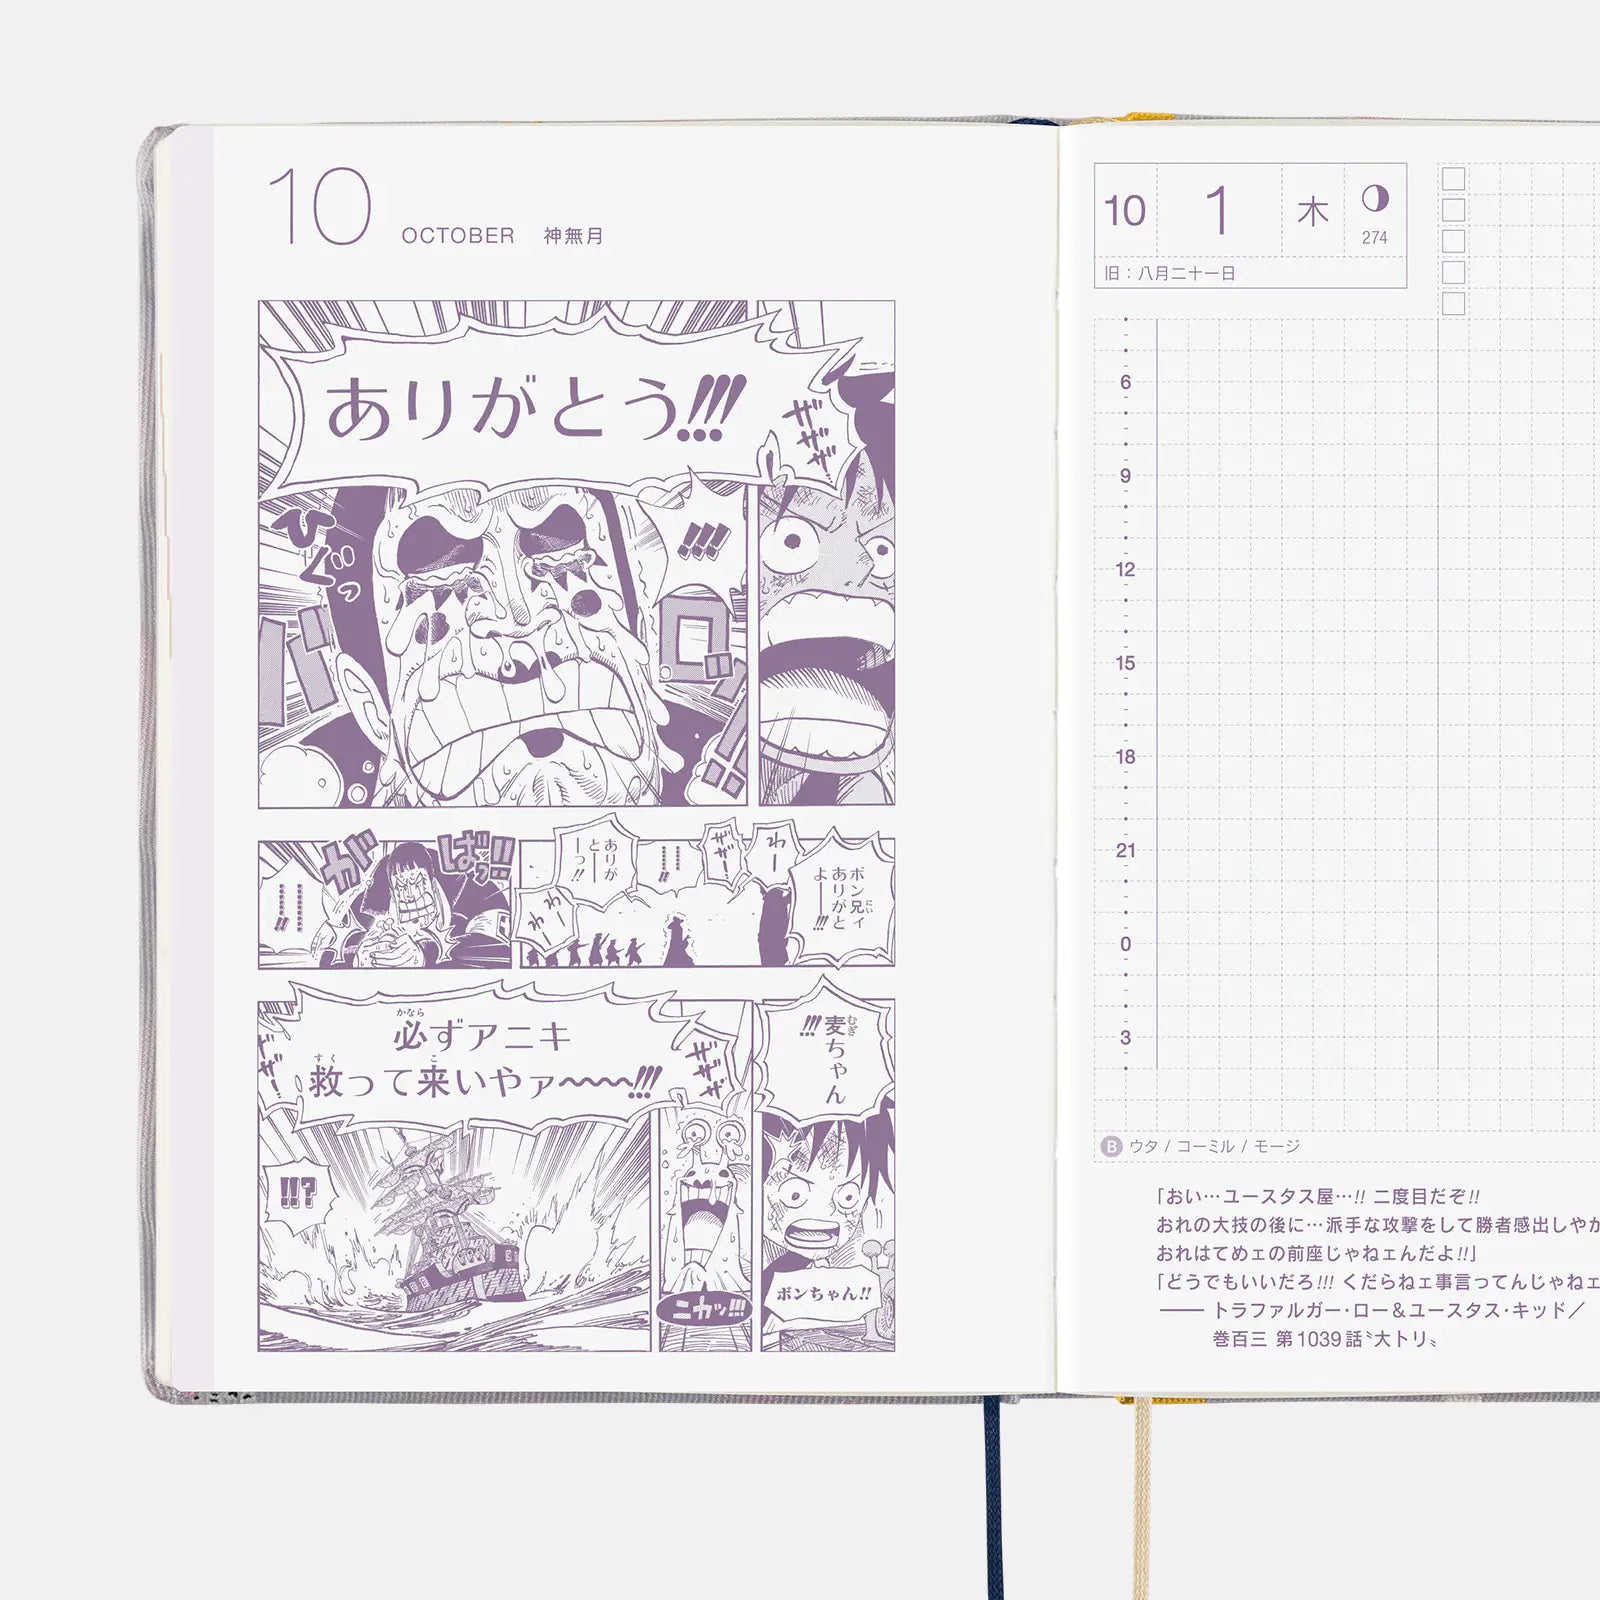 10 OCTOBER 神無月
ありがとう!!!
ザザザ
ひぐっ
!!!
バロロ!!
がばっ!!
…………!!
ボン兄ィ
ありがと
よ――!!!
わー
ザザー
……!!
ありが
と――
――っ!!
わわー
必ずアニキ
かなら
救って来いやァ〜〜〜!!!
すく
こ
ザザー
ザザザ
!!?
ニカッ!!!
麦ちゃん
むぎ
!!!
ボンちゃん!!
10 1 木
274
旧：八月二十一日
6
9
12
15
18
21
0
3
B ウタ / コーミル / モージ
「おい…ユースタス屋…!! 二度目だぞ!!
おれの大技の後に…派手な攻撃をして勝者感出しやか
おれはてめェの前座じゃねェんだよ!!」
「どうでもいいだろ!!! くだらねェ事言ってんじゃねェ
―― トラファルガー・ロー＆ユースタス・キッド／
巻百三 第1039話〝大トリ〟